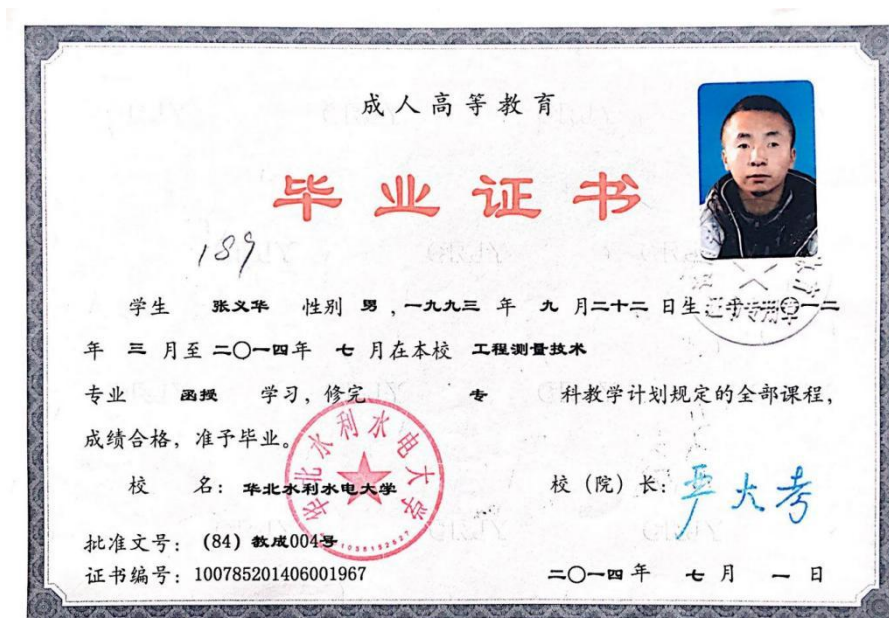 成人高等教育
毕业证书
189
学生 张义华 性别 男，一九九三 年 九 月二十二 日生，于二〇一二
年 三 月至 二〇一四年 七 月在本校 工程测量技术
专业 函授 学习，修完 专 科教学计划规定的全部课程，
成绩合格，准予毕业。
华北水利水电大学
校 名：华北水利水电大学 校（院）长：严大考
批准文号：(84) 教成004号
证书编号：100785201406001967 二〇一四年 七 月 一 日